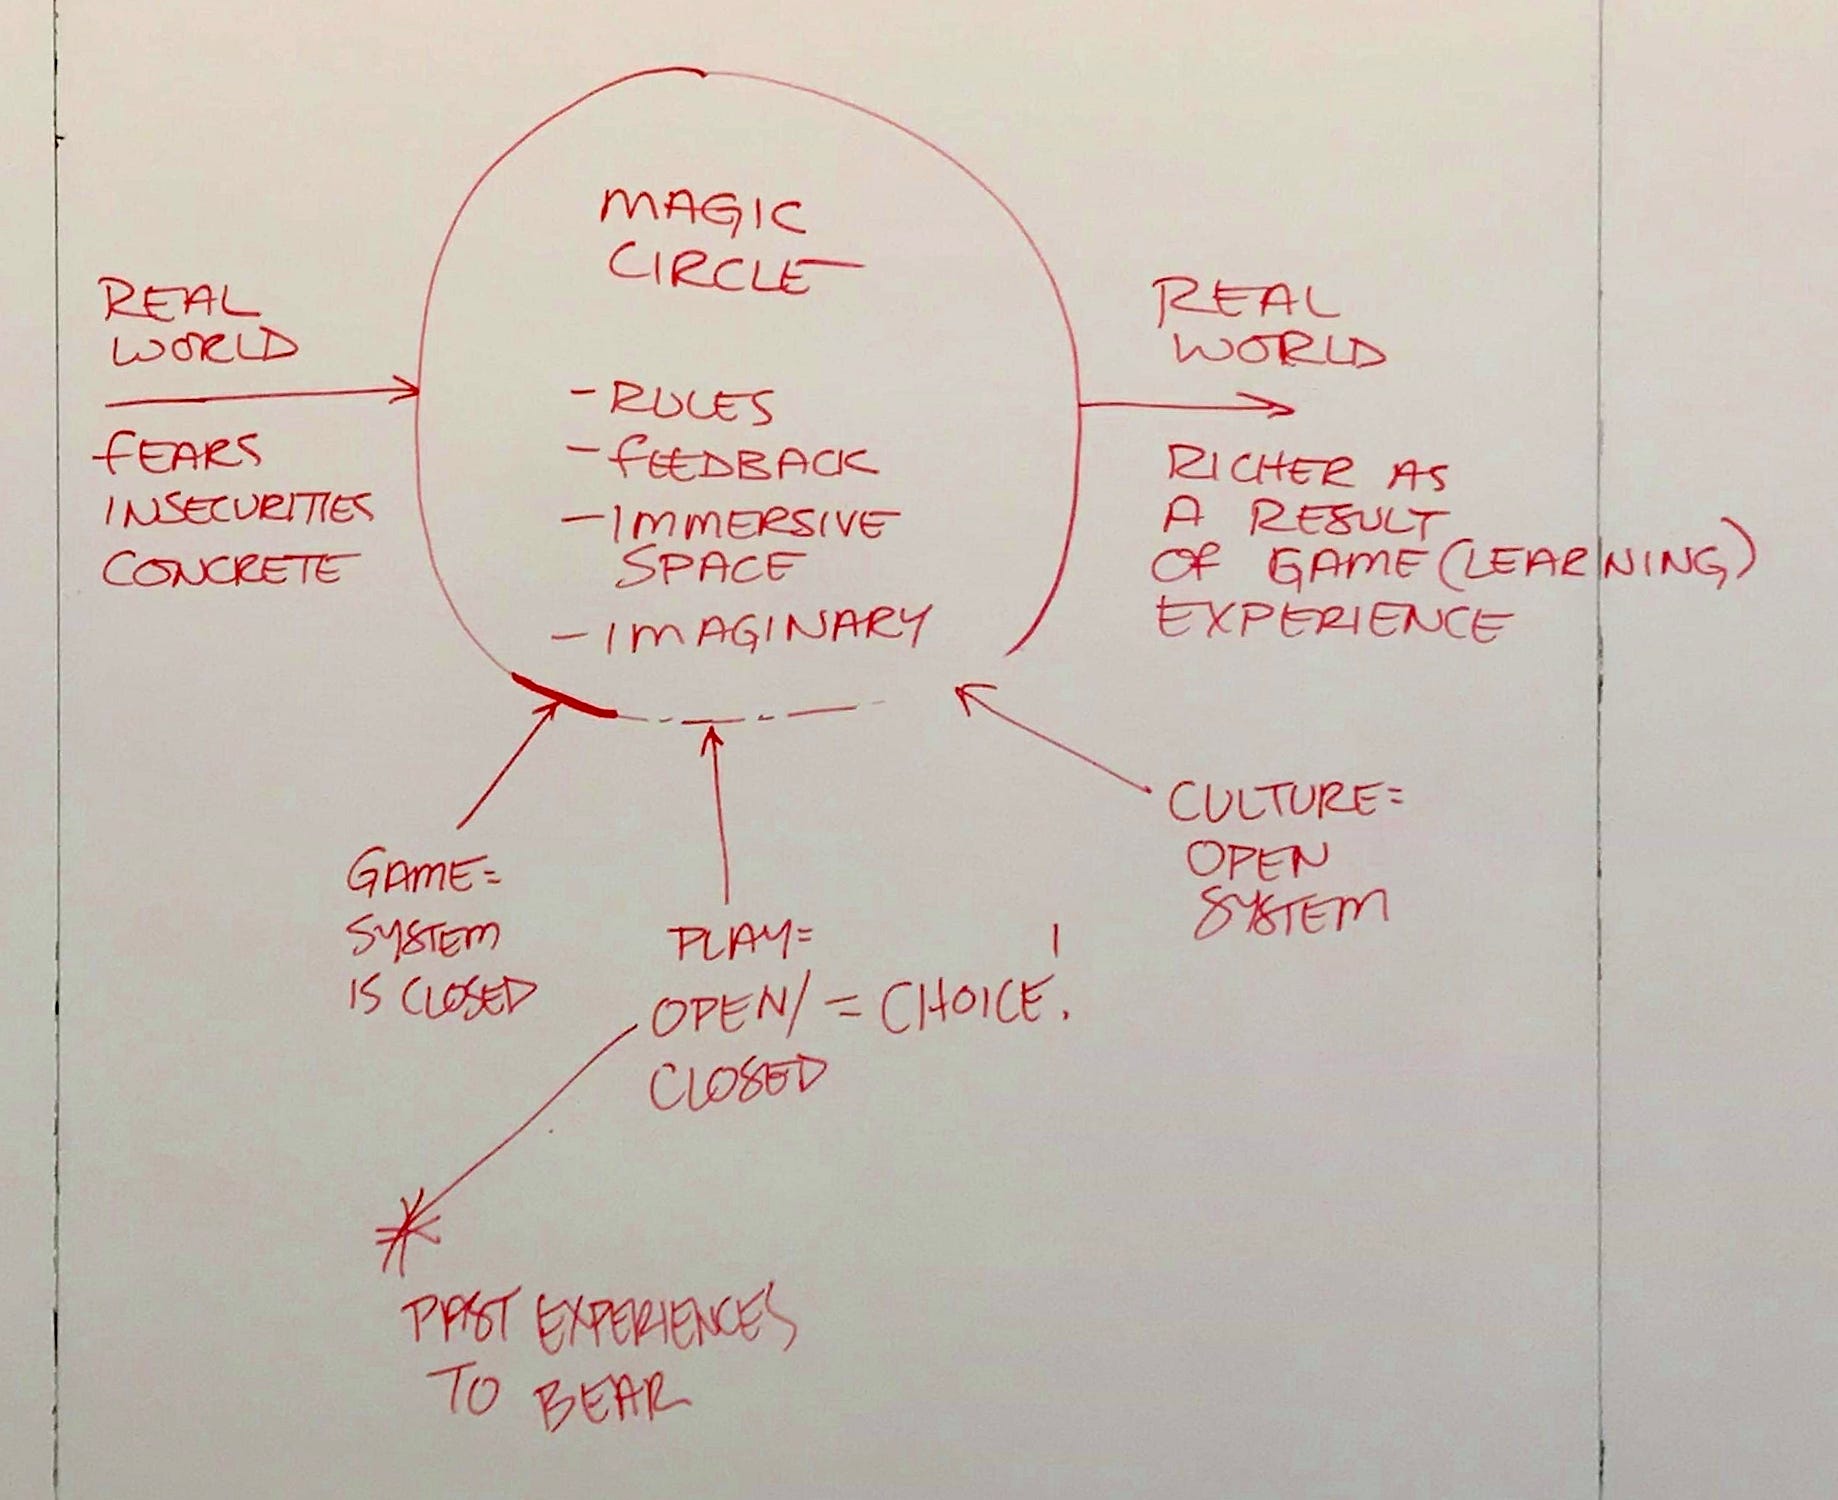 MAGIC
CIRCLE
REAL
WORLD
FEARS
INSECURITIES
CONCRETE
- RULES
- FEEDBACK
- IMMERSIVE
SPACE
- IMAGINARY
REAL
WORLD
RICHER AS
A RESULT
OF GAME (LEARNING)
EXPERIENCE
GAME =
SYSTEM
IS CLOSED
PLAY =
OPEN/ = CHOICE!
CLOSED
CULTURE =
OPEN
SYSTEM
*
PAST EXPERIENCES
TO BEAR